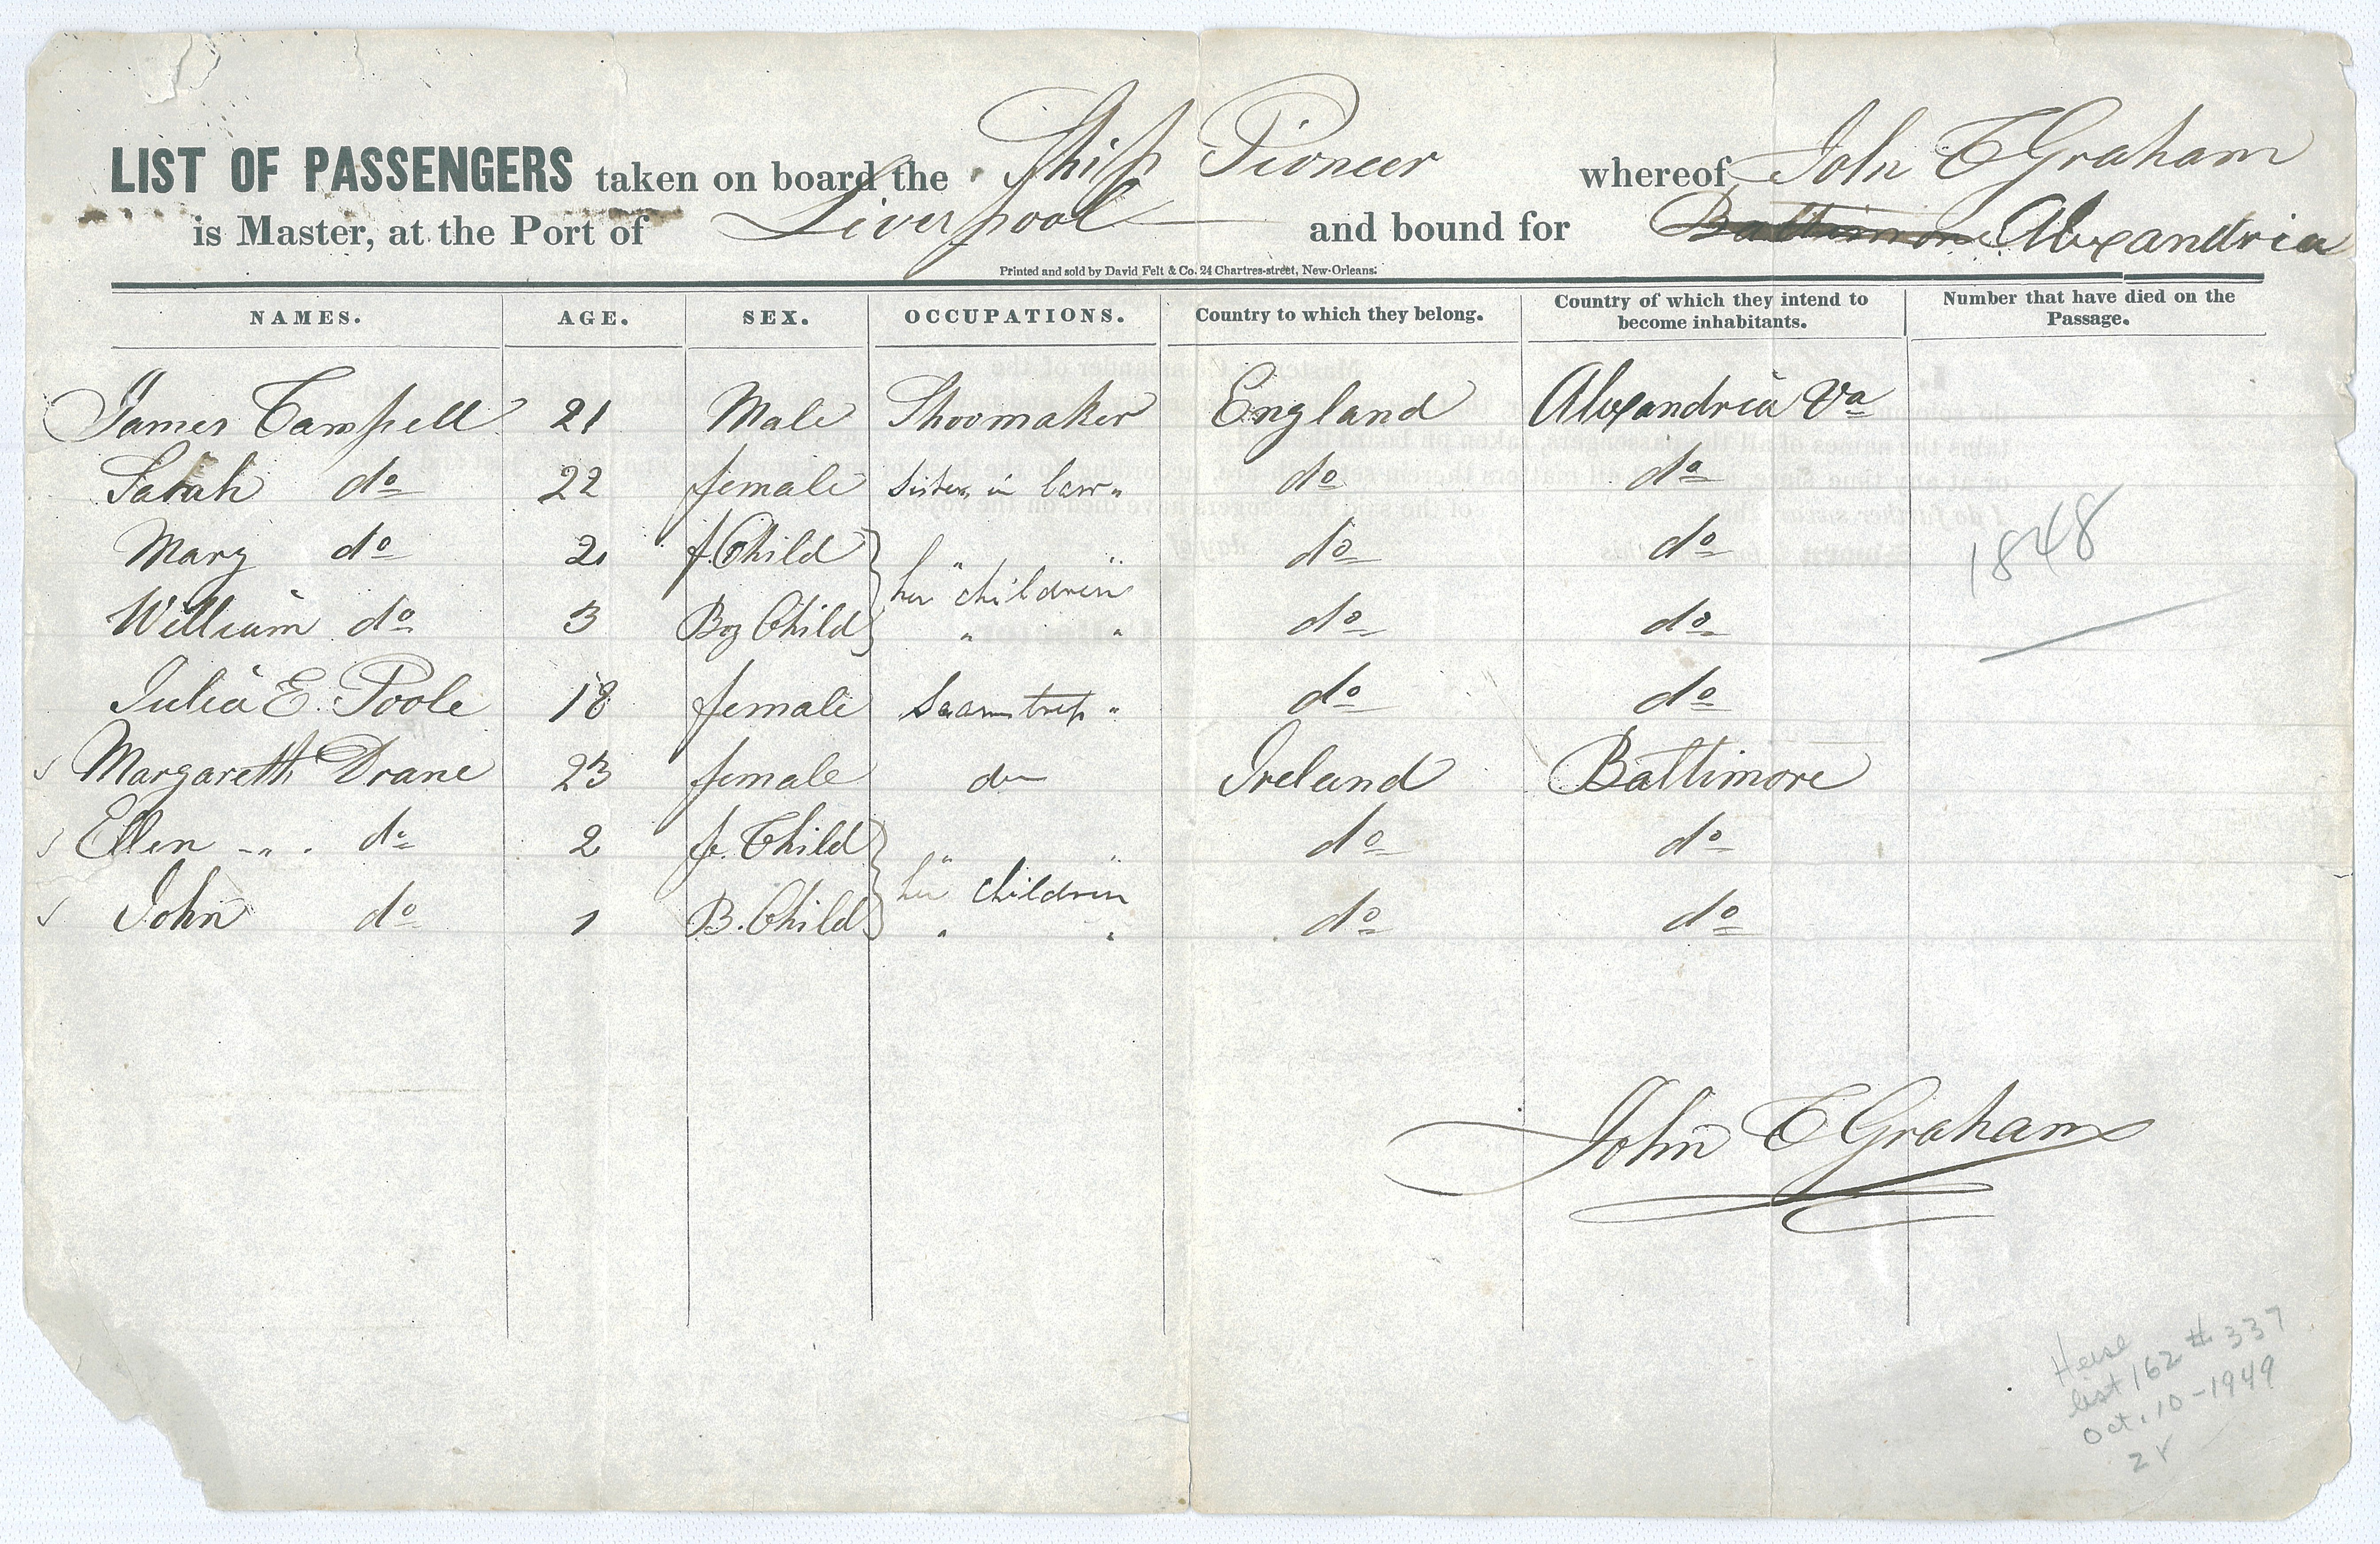 LIST OF PASSENGERS taken on board the Ship Pioneer whereof John C Graham
is Master, at the Port of Liverpool and bound for Baltimore Alexandria
Printed and sold by David Felt & Co. 24 Chartres-street, New-Orleans.
NAMES. AGE. SEX. OCCUPATIONS. Country to which they belong. Country of which they intend to become inhabitants. Number that have died on the Passage.
James Campell 21 Male Shoomaker England Alexandria Va
Sarah do 22 female Sister in law " do do
Mary do 2 f. Child " " do do
her children
William do 3 Boy Child " " do do
1848
Julia E. Poole 18 female Seamstress " do do
Margareth Drane 23 female do Ireland Baltimore
Ellen - " . do 2 fe. Child " " do do
her children
John do 1 B. Child " " do do
John C Graham
Heise
list 162 # 337
Oct. 10-1949